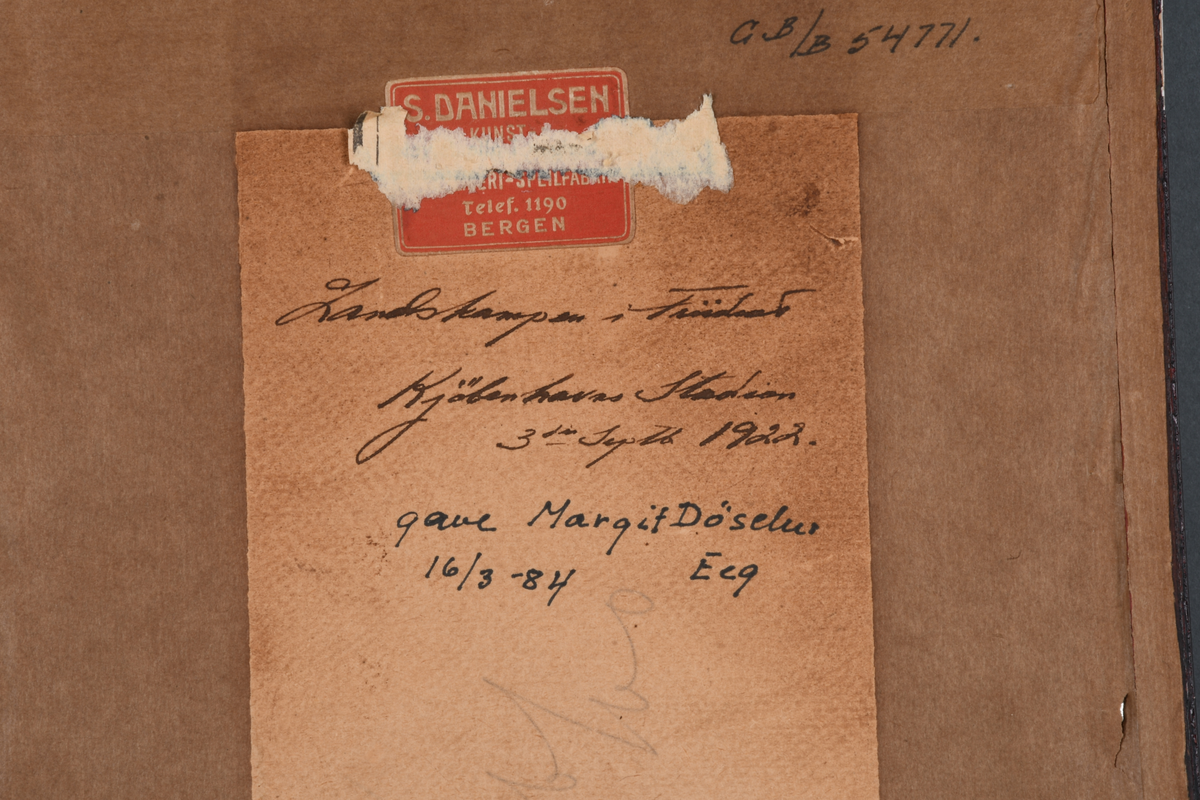 GB/B 54771.
S. DANIELSEN
KUNST
ERI-SPEILFABRI
Telef. 1190
BERGEN
Landskampen i Friidræt
Kjöbenhavns Stadion
3die Septb 1922.
gave Margit Döselus
16/3 -84 Eeg